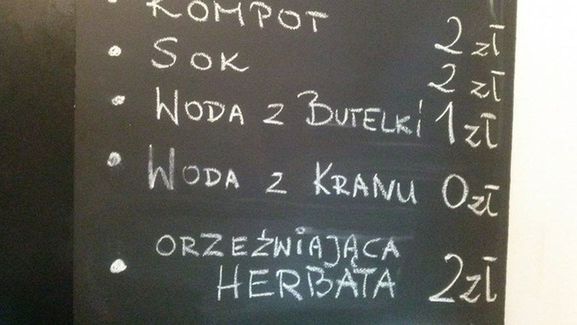 • KOMPOT 2 zł
• SOK 2 zł
• WODA Z BUTELKI 1 zł
• WODA Z KRANU 0 zł
ORZEŹWIAJĄCA
• HERBATA 2 zł